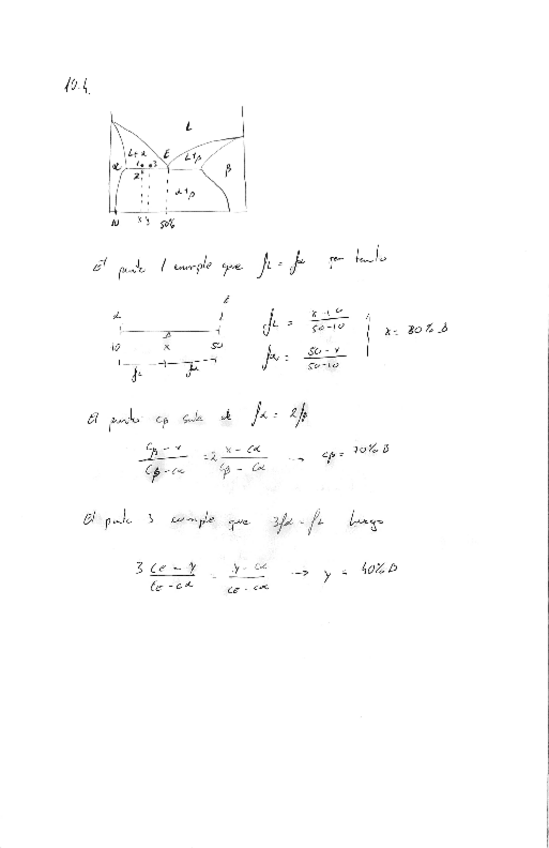 10.4.
L
L+α E L+β
α 1 3 β
2 α+β
x y 50%
El punto 1 cumple que fL = fα por tanto
α L
10 x 50
fL fα
fL = x-10 / 50-10
fα = 50-x / 50-10
x = 30% B
El punto cβ sale de fα = 2fβ
Cβ - x / Cβ - Cα = 2 x - Cα / Cβ - Cα → Cβ = 70% B
El punto 3 cumple que 3fα = fL luego
3 CE - y / CE - Cα = y - Cα / CE - Cα → y = 40% B